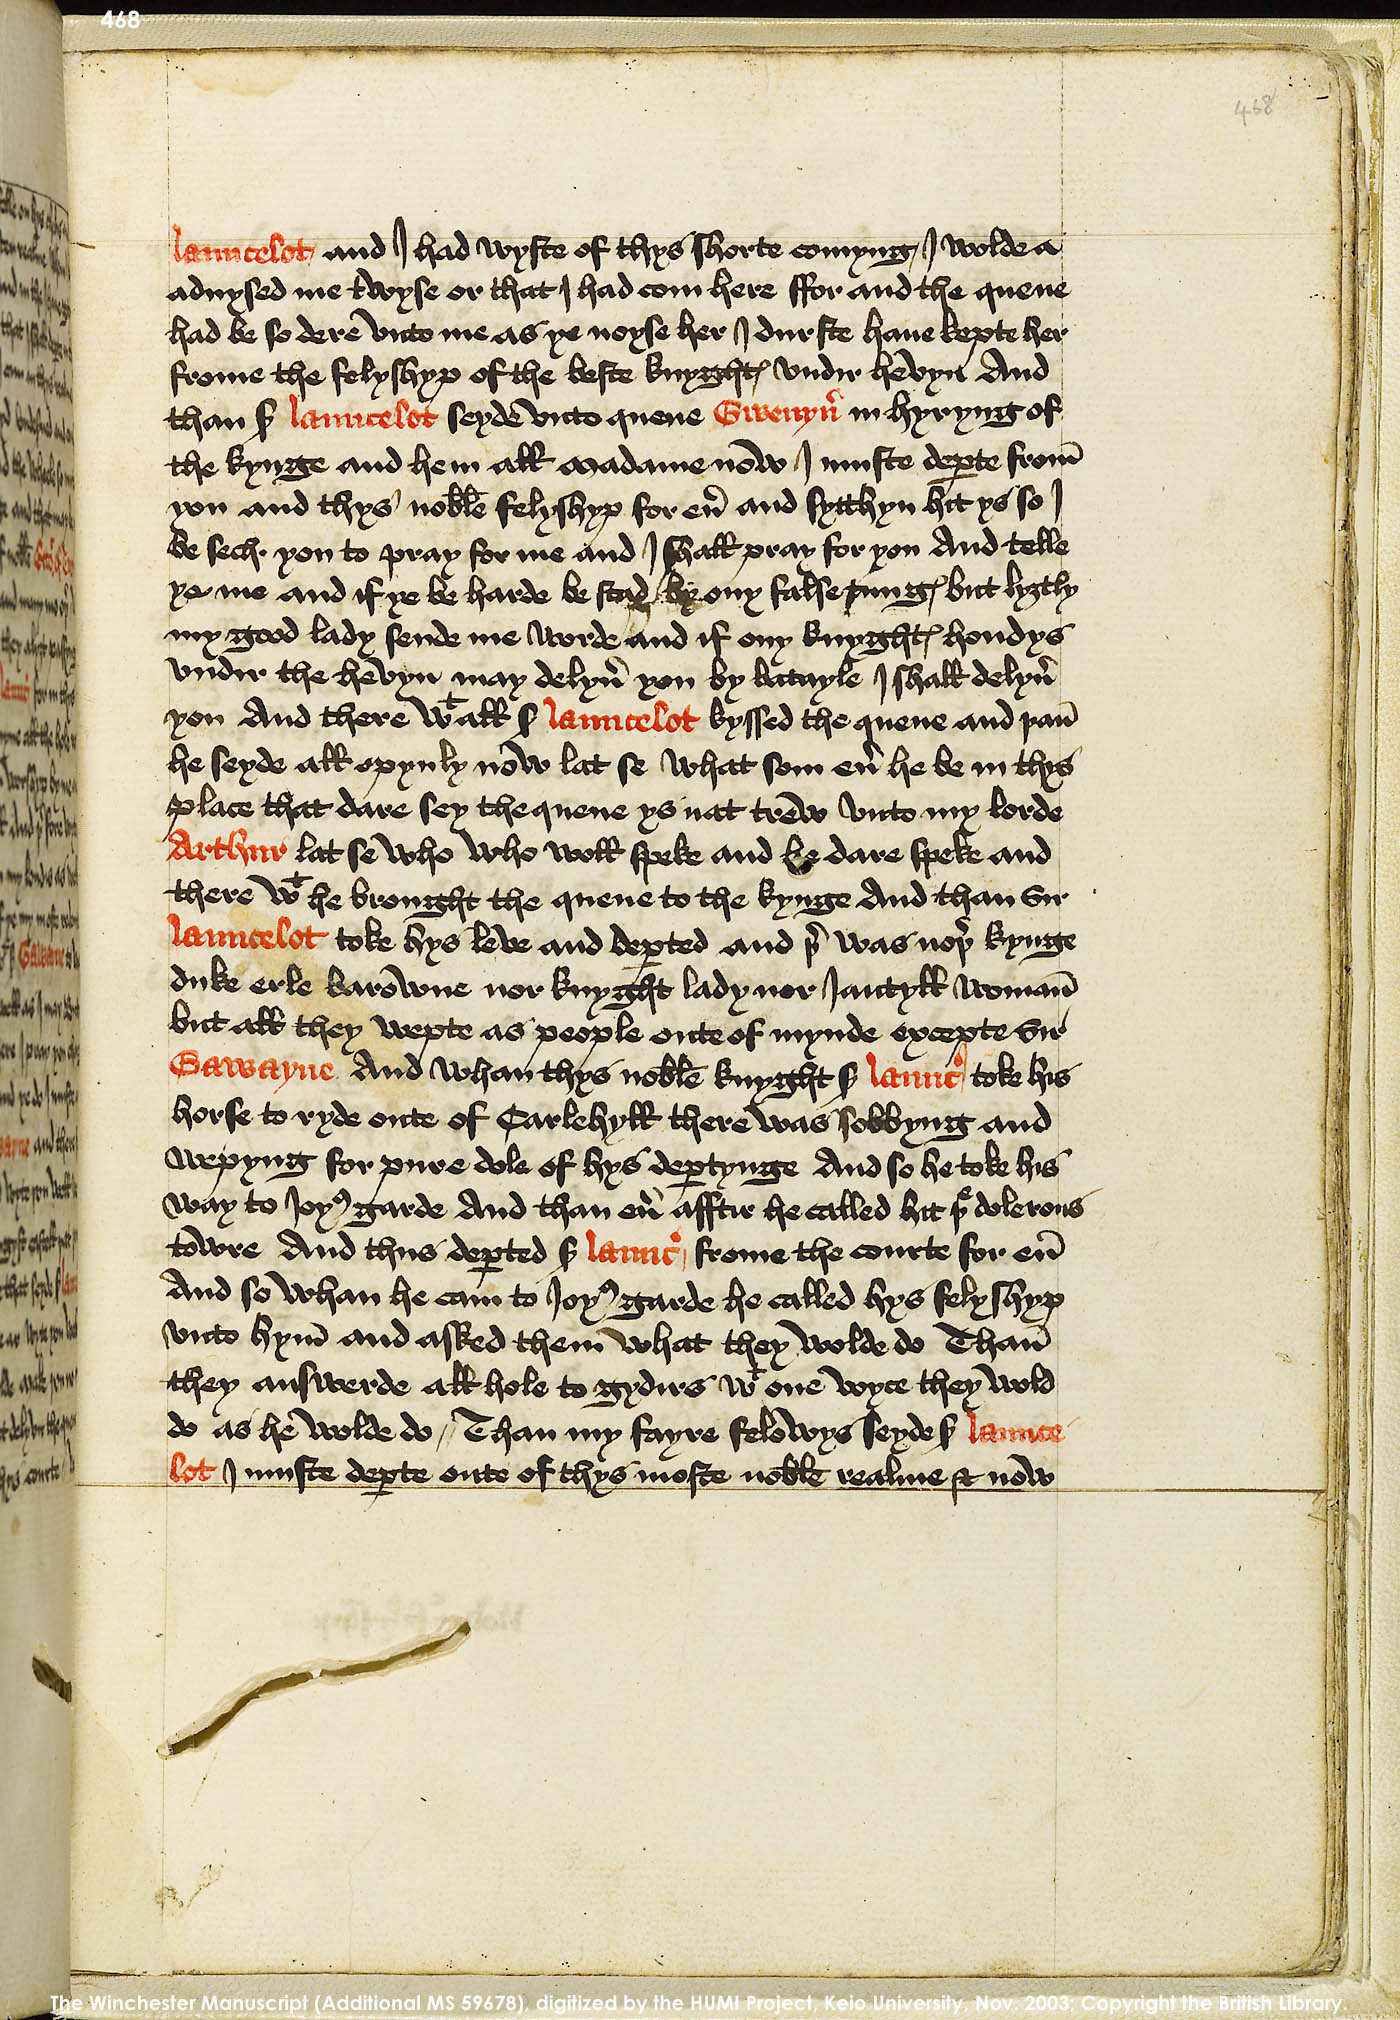 468
468
launcelot and I had wyste of thys shorte comyng I wolde a
aduysed me twyse or that I had com here ffor and the quene
had be so dere vnto me as ye noyse her I durste haue kepte her
frome the felyshyp of the beste knyghtꝭ vndir hevyn And
than sʳ launcelot seyde vnto quene Gwenyuͬ in hyryng of
the kynge and hem all madame now I muste deꝑte from̄
you and thys noble felyshyp for eūͬ and sytthyn hit ys so I
be sech you to pray for me and I shall pray for you And telle
ye me and if ye be harde be stad by ony false tungꝭ but lyȝtly
my good lady sende me worde and if ony knyghtꝭ hondys
vndir the hevyn may delyuͬ you by batayle I shall delyuͬ
you And there wᵗ all sʳ launcelot kyssed the quene and þan̄
he seyde all opynly now lat se what som euͬ he be in thys
place that dare sey the quene ys nat trew vnto my lorde
Arthur lat se who who woll speke and he dare speke and
there wᵗ he brought the quene to the kynge And than Sir
launcelot toke hys leve and deꝑted and þͬ was noþͬ kynge
duke erle barowne nor knyght lady nor Jantyll woman̄
but all they wepte as people oute of mynde excepte Sir
Gawayne And whan thys noble knyght sʳ launcͦ toke his
horse to ryde oute of Carlehyll there was sobbyng and
wepyng for pure dole of hys deꝑtynge And so he toke his
way to Joyꝰ garde And than euͬ afftir he called hit þᵉ dolerous
towre And thus deꝑted sʳ launcͦ frome the courte for euͬ
And so whan he cam to Joyꝰ garde he called hys felyshyp
vnto hym̄ and asked them what they wolde do Than̄
they answerde all hole to gydirs wᵗ one voyce they wold
do as he wolde do // Than my fayre felowys seyde sʳ launce
lot I muste deꝑte oute of thys moste noble realme & now
The Winchester Manuscript (Additional MS 59678), digitized by the HUMI Project, Keio University, Nov. 2003; Copyright the British Library.